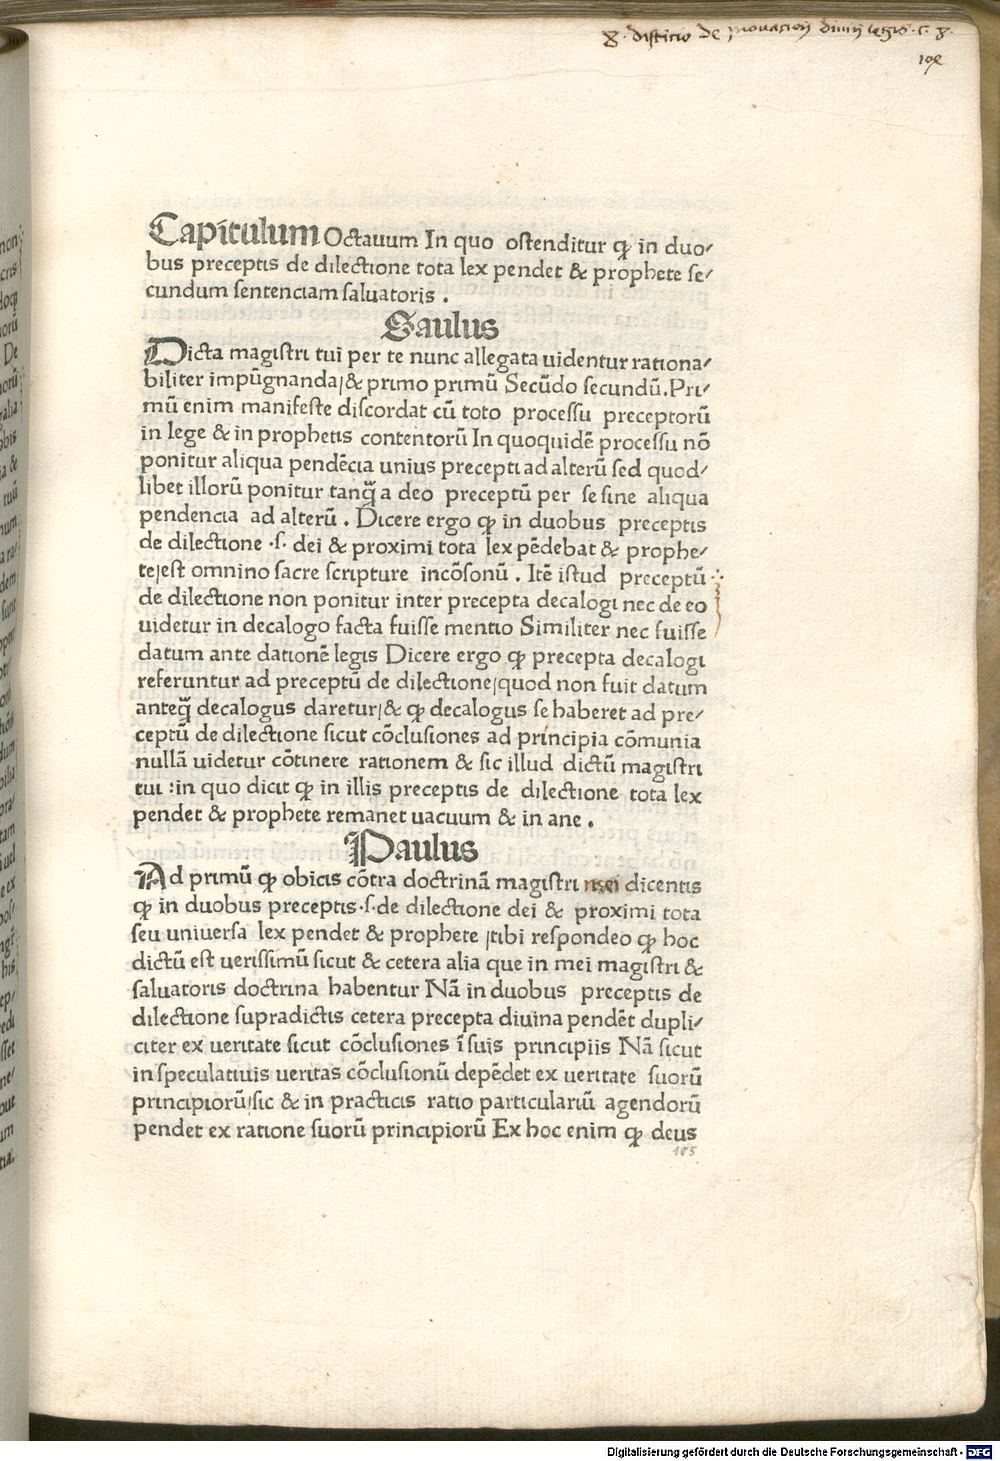 8. disticio de
c. 8.
Capitulum Octauum In quo ostenditur ꝙ in duo/
bus preceptis de dilectione tota lex pendet & prophete se/
cundum sentenciam saluatoris .
Saulus
Dicta magistri tui per te nunc allegata uidentur rationa/
biliter impũgnanda/& primo primũ Secũdo secundũ.Pri/
mũ enim manifeste discordat cũ toto processu preceptorũ
in lege & in prophetis contentorũ In quoquidẽ processu nõ
ponitur aliqua pendẽcia unius precepti ad alterũ sed quod/
libet illorũ ponitur tanꝗ̃ a deo preceptũ per se sine aliqua
pendencia ad alterũ . Dicere ergo ꝙ in duobus preceptis
de dilectione .s. dei & proximi tota lex pẽdebat & prophe/
te/est omnino sacre scripture incõsonũ . Itẽ istud preceptũ
de dilectione non ponitur inter precepta decalogi nec de eo
uidetur in decalogo facta fuisse mentio Similiter nec fuisse
datum ante dationẽ legis Dicere ergo ꝙ precepta decalogi
referuntur ad preceptũ de dilectione/quod non fuit datum
anteꝗ̃ decalogus daretur/& ꝙ decalogus se haberet ad pre/
ceptũ de dilectione sicut cõclusiones ad principia cõmunia
nullã uidetur cõtinere rationem & sic illud dictũ magistri
tui :in quo dicit ꝙ in illis preceptis de dilectione tota lex
pendet & prophete remanet uacuum & in ane .
Paulus
Ad primũ ꝙ obicis cõtra doctrinã magistri mei dicentis
ꝙ in duobus preceptis.s.de dilectione dei & proximi tota
seu uniuersa lex pendet & prophete /tibi respondeo ꝙ hoc
dictũ est uerissimũ sicut & cetera alia que in mei magistri &
saluatoris doctrina habentur Nã in duobus preceptis de
dilectione supradictis cetera precepta diuina pendẽt dupli/
citer ex ueritate sicut cõclusiones ĩ suis principiis Nã sicut
in speculatiuis ueritas cõclusionũ depẽdet ex ueritate suorũ
principiorũ/sic & in practicis ratio particulariũ agendorũ
pendet ex ratione suorũ principiorũ Ex hoc enim ꝙ deus
105
Digitalisierung gefördert durch die Deutsche Forschungsgemeinschaft - DFG